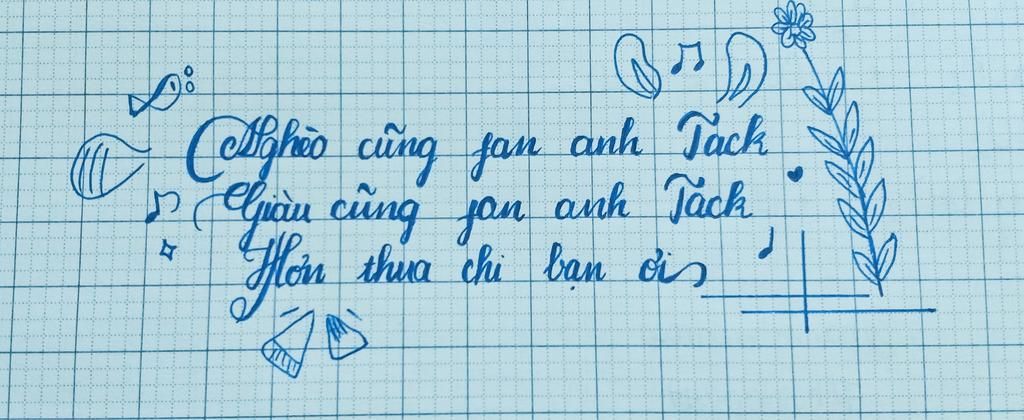 Nghèo cũng fan anh Jack
Giàu cũng fan anh Jack
Hơn thua chi bạn ơi